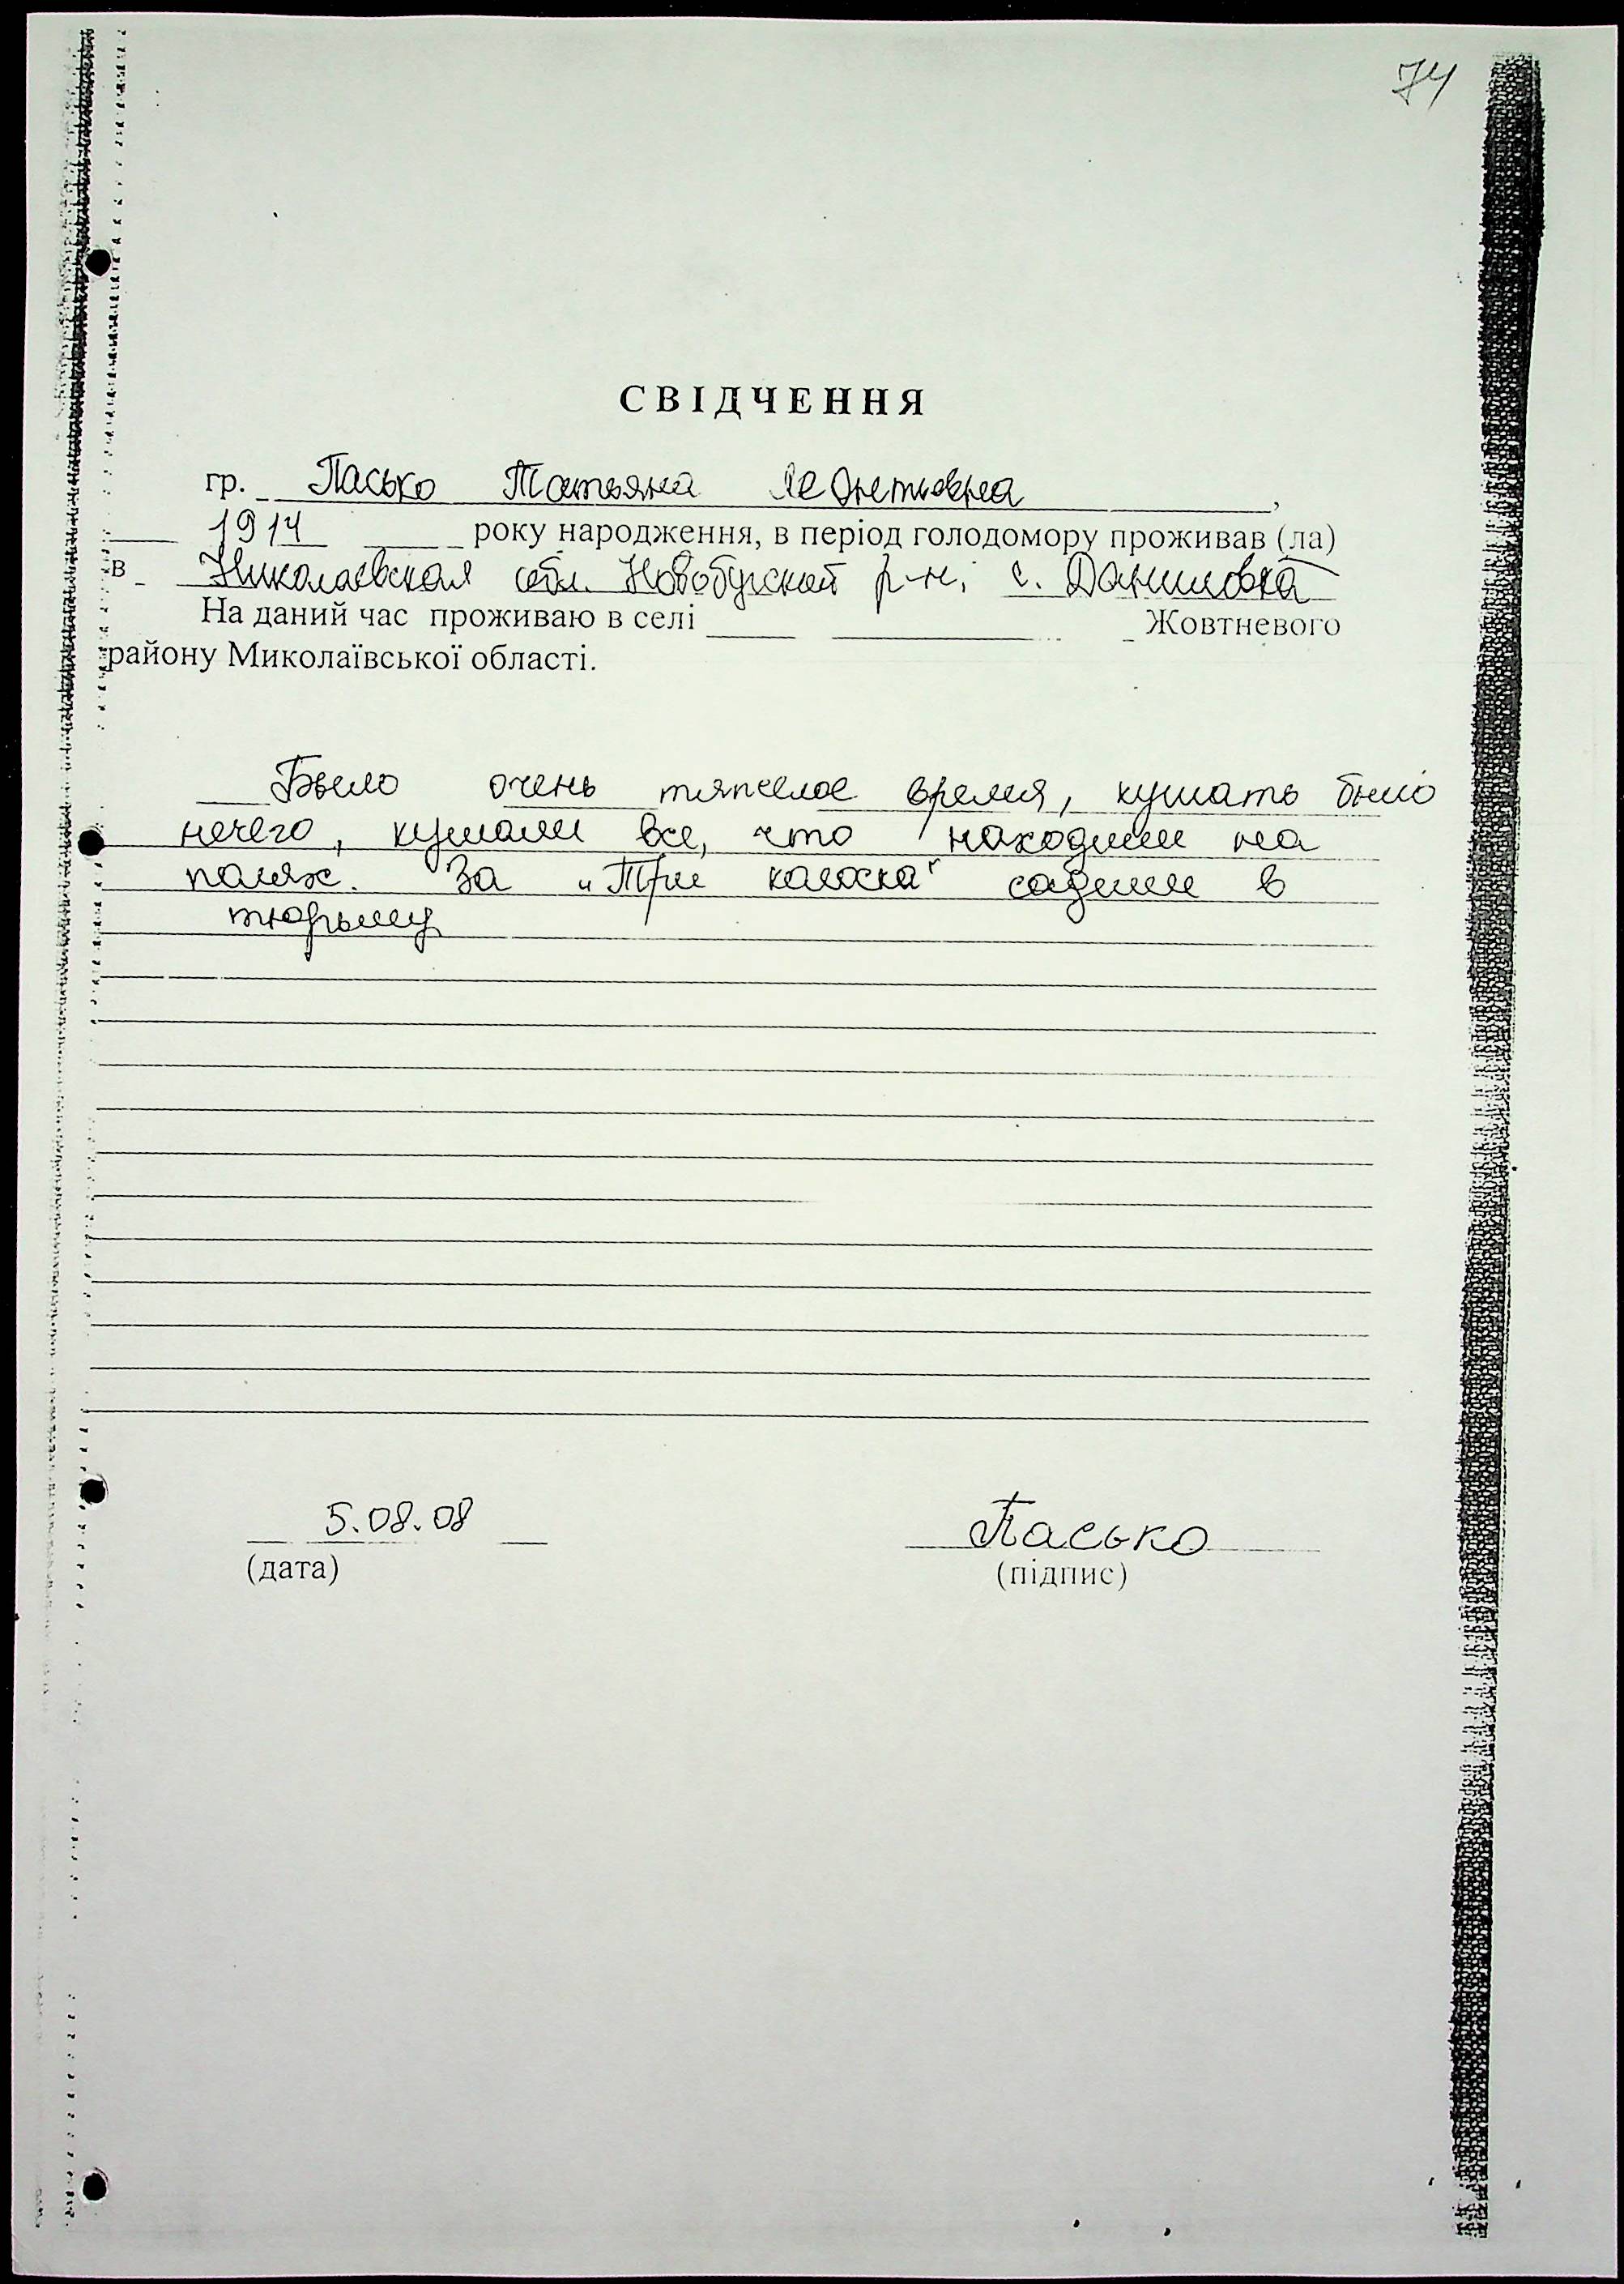 74
СВІДЧЕННЯ
гр. Пасько Татьяна Леонтьевна,
1914 року народження, в період голодомору проживав (ла)
в Николаевская обл. Новобугский р-н, с. Даниловка
На даний час проживаю в селі Жовтневого
району Миколаївської області.
Было очень тяжелое время, кушать было
нечего, кушали все, что находили на
полях. За "Три колоска" садили в
тюрьму
5.08.08 Пасько
(дата) (підпис)